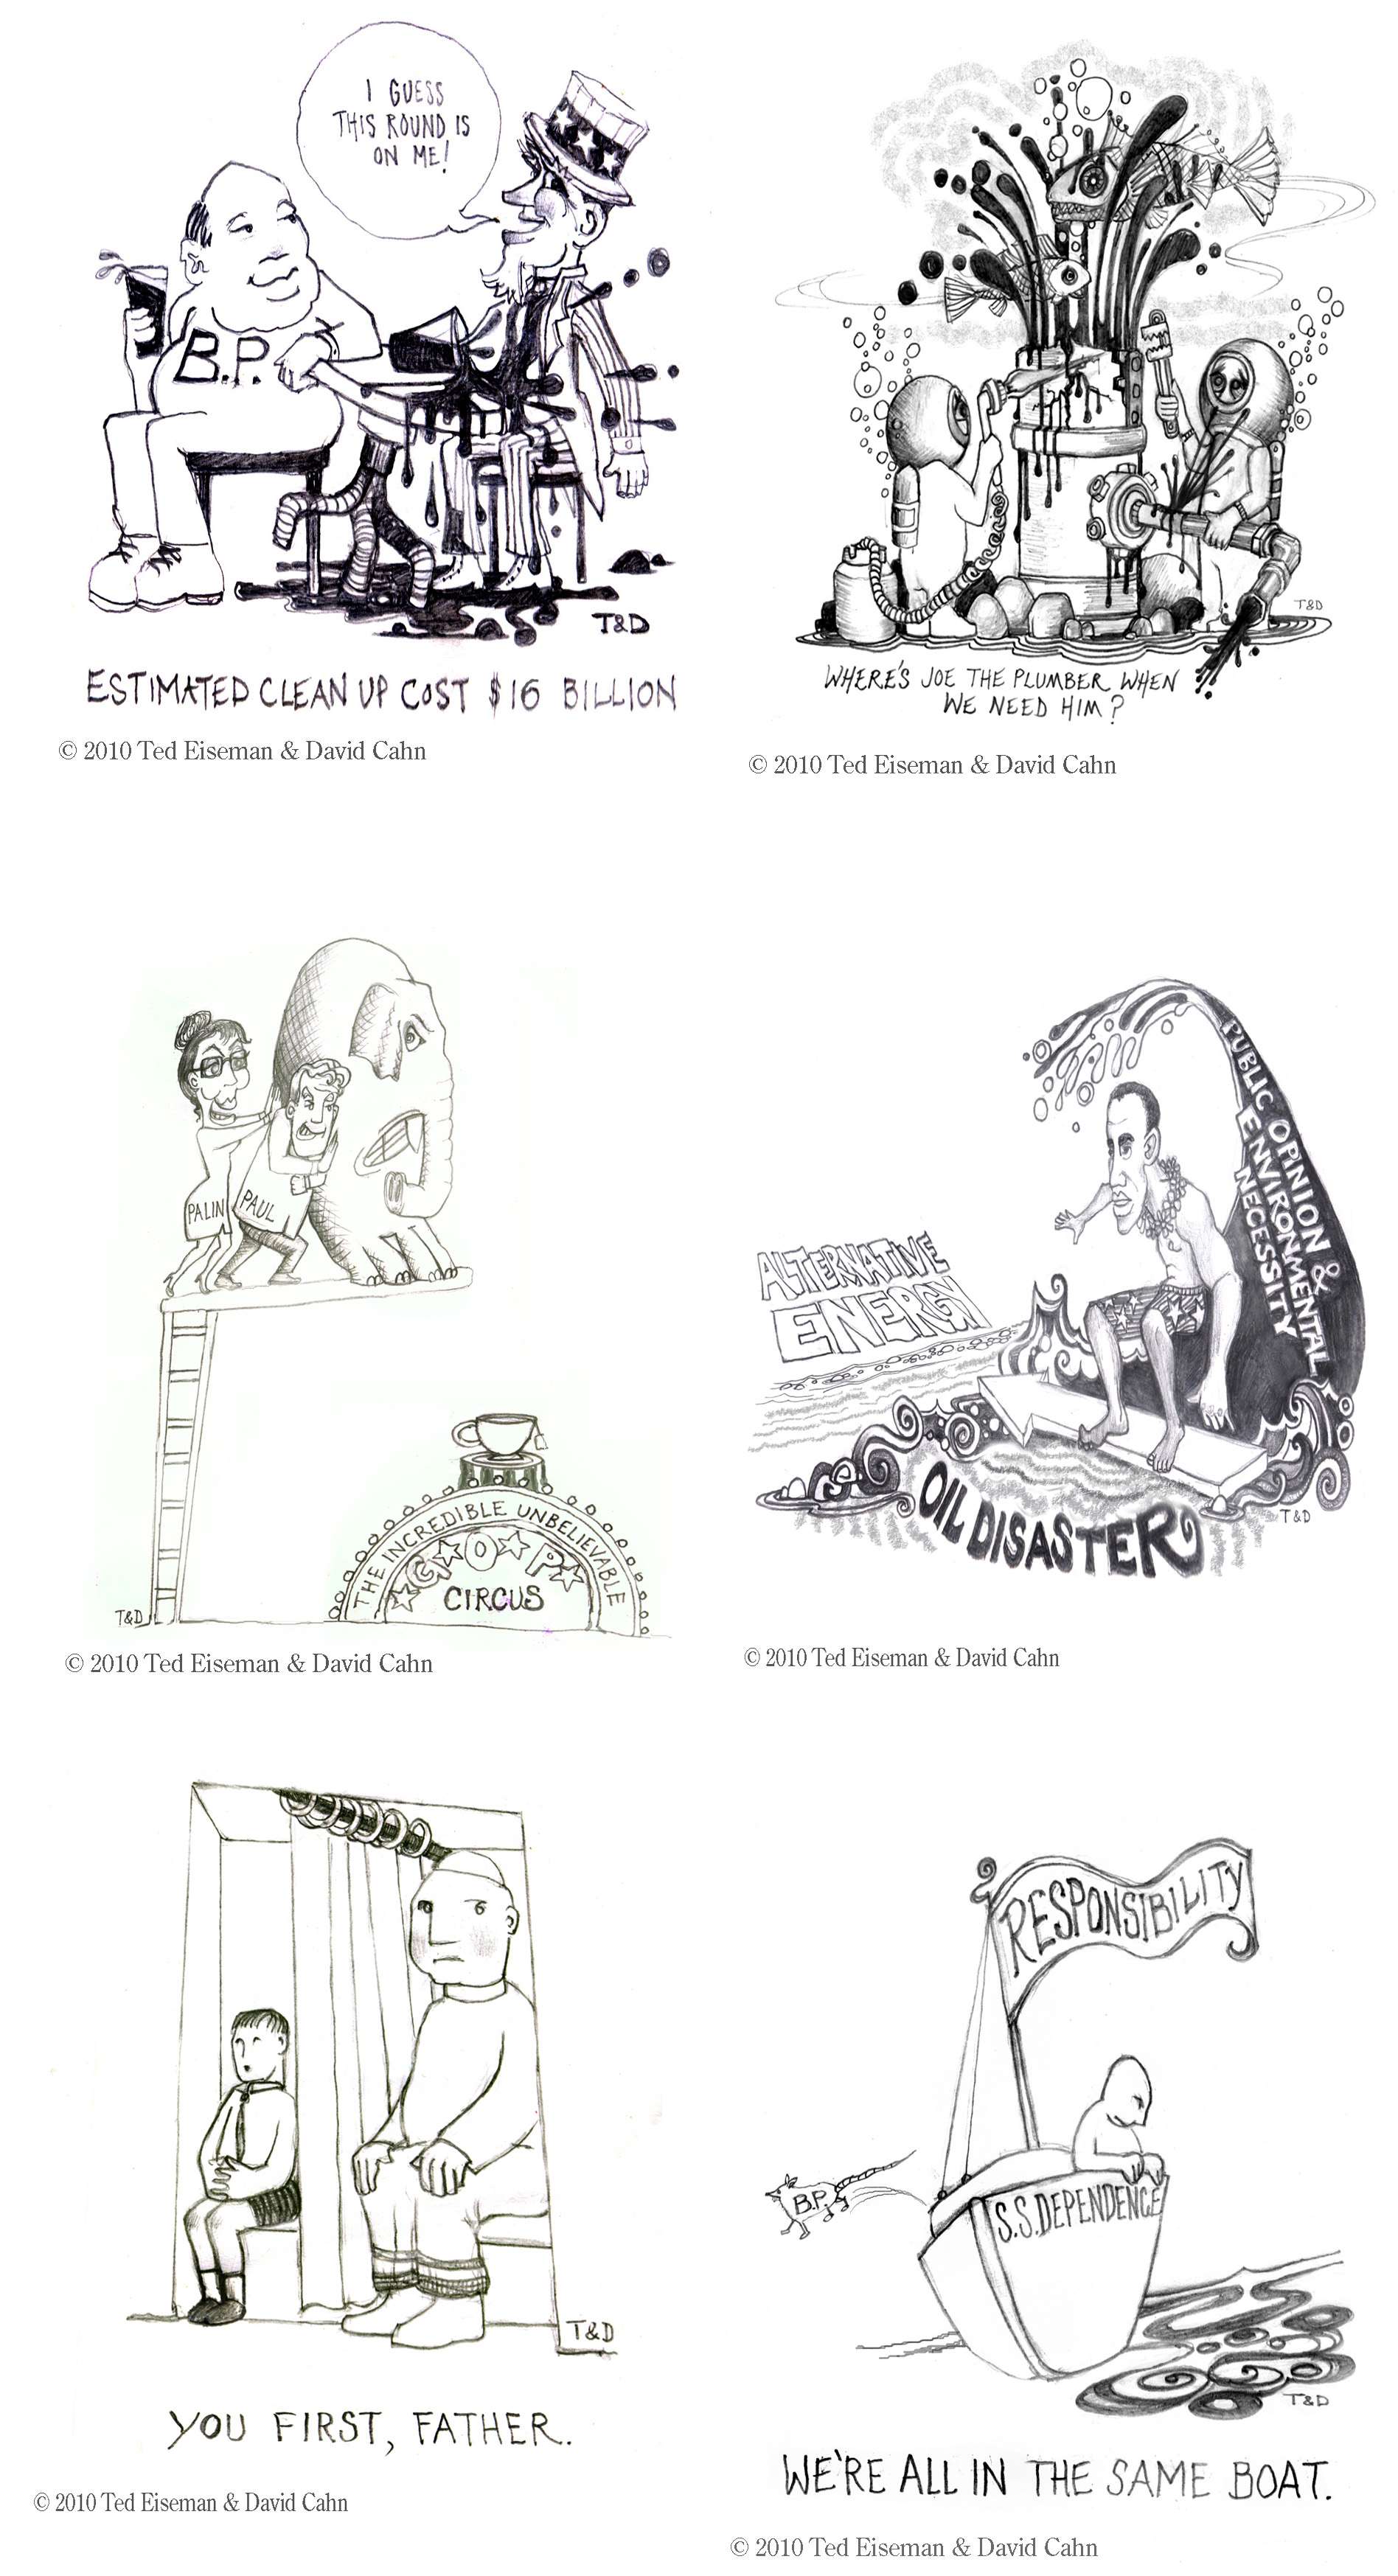 I GUESS
THIS ROUND IS
ON ME!
B.P.
T&D
ESTIMATED CLEAN UP COST $16 BILLION
© 2010 Ted Eiseman & David Cahn
T&D
WHERE'S JOE THE PLUMBER WHEN
WE NEED HIM?
© 2010 Ted Eiseman & David Cahn
PALIN
PAUL
THE INCREDIBLE UNBELIEVABLE
G★O★P★
CIRCUS
T&D
© 2010 Ted Eiseman & David Cahn
PUBLIC OPINION &
ENVIRONMENTAL
NECESSITY
ALTERNATIVE
ENERGY
OIL DISASTER
T&D
© 2010 Ted Eiseman & David Cahn
T&D
YOU FIRST, FATHER.
© 2010 Ted Eiseman & David Cahn
RESPONSIBILITY
B.P.
S.S.DEPENDENCE
T&D
WE'RE ALL IN THE SAME BOAT.
© 2010 Ted Eiseman & David Cahn